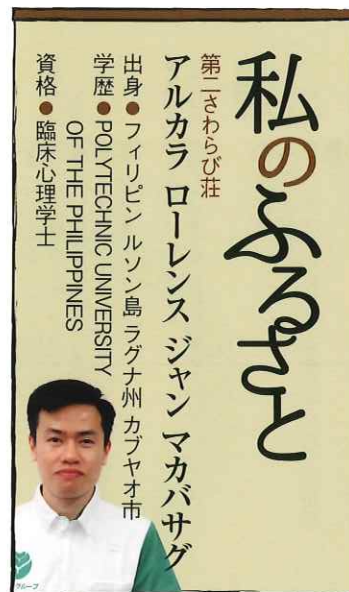 私のふるさと
第二さわらび荘
アルカラ ローレンス ジャン マカバサグ
出身●フィリピン ルソン島 ラグナ州 カブヤオ市
学歴●POLYTECHNIC UNIVERSITY
OF THE PHILIPPINES
資格●臨床心理学士
グループ